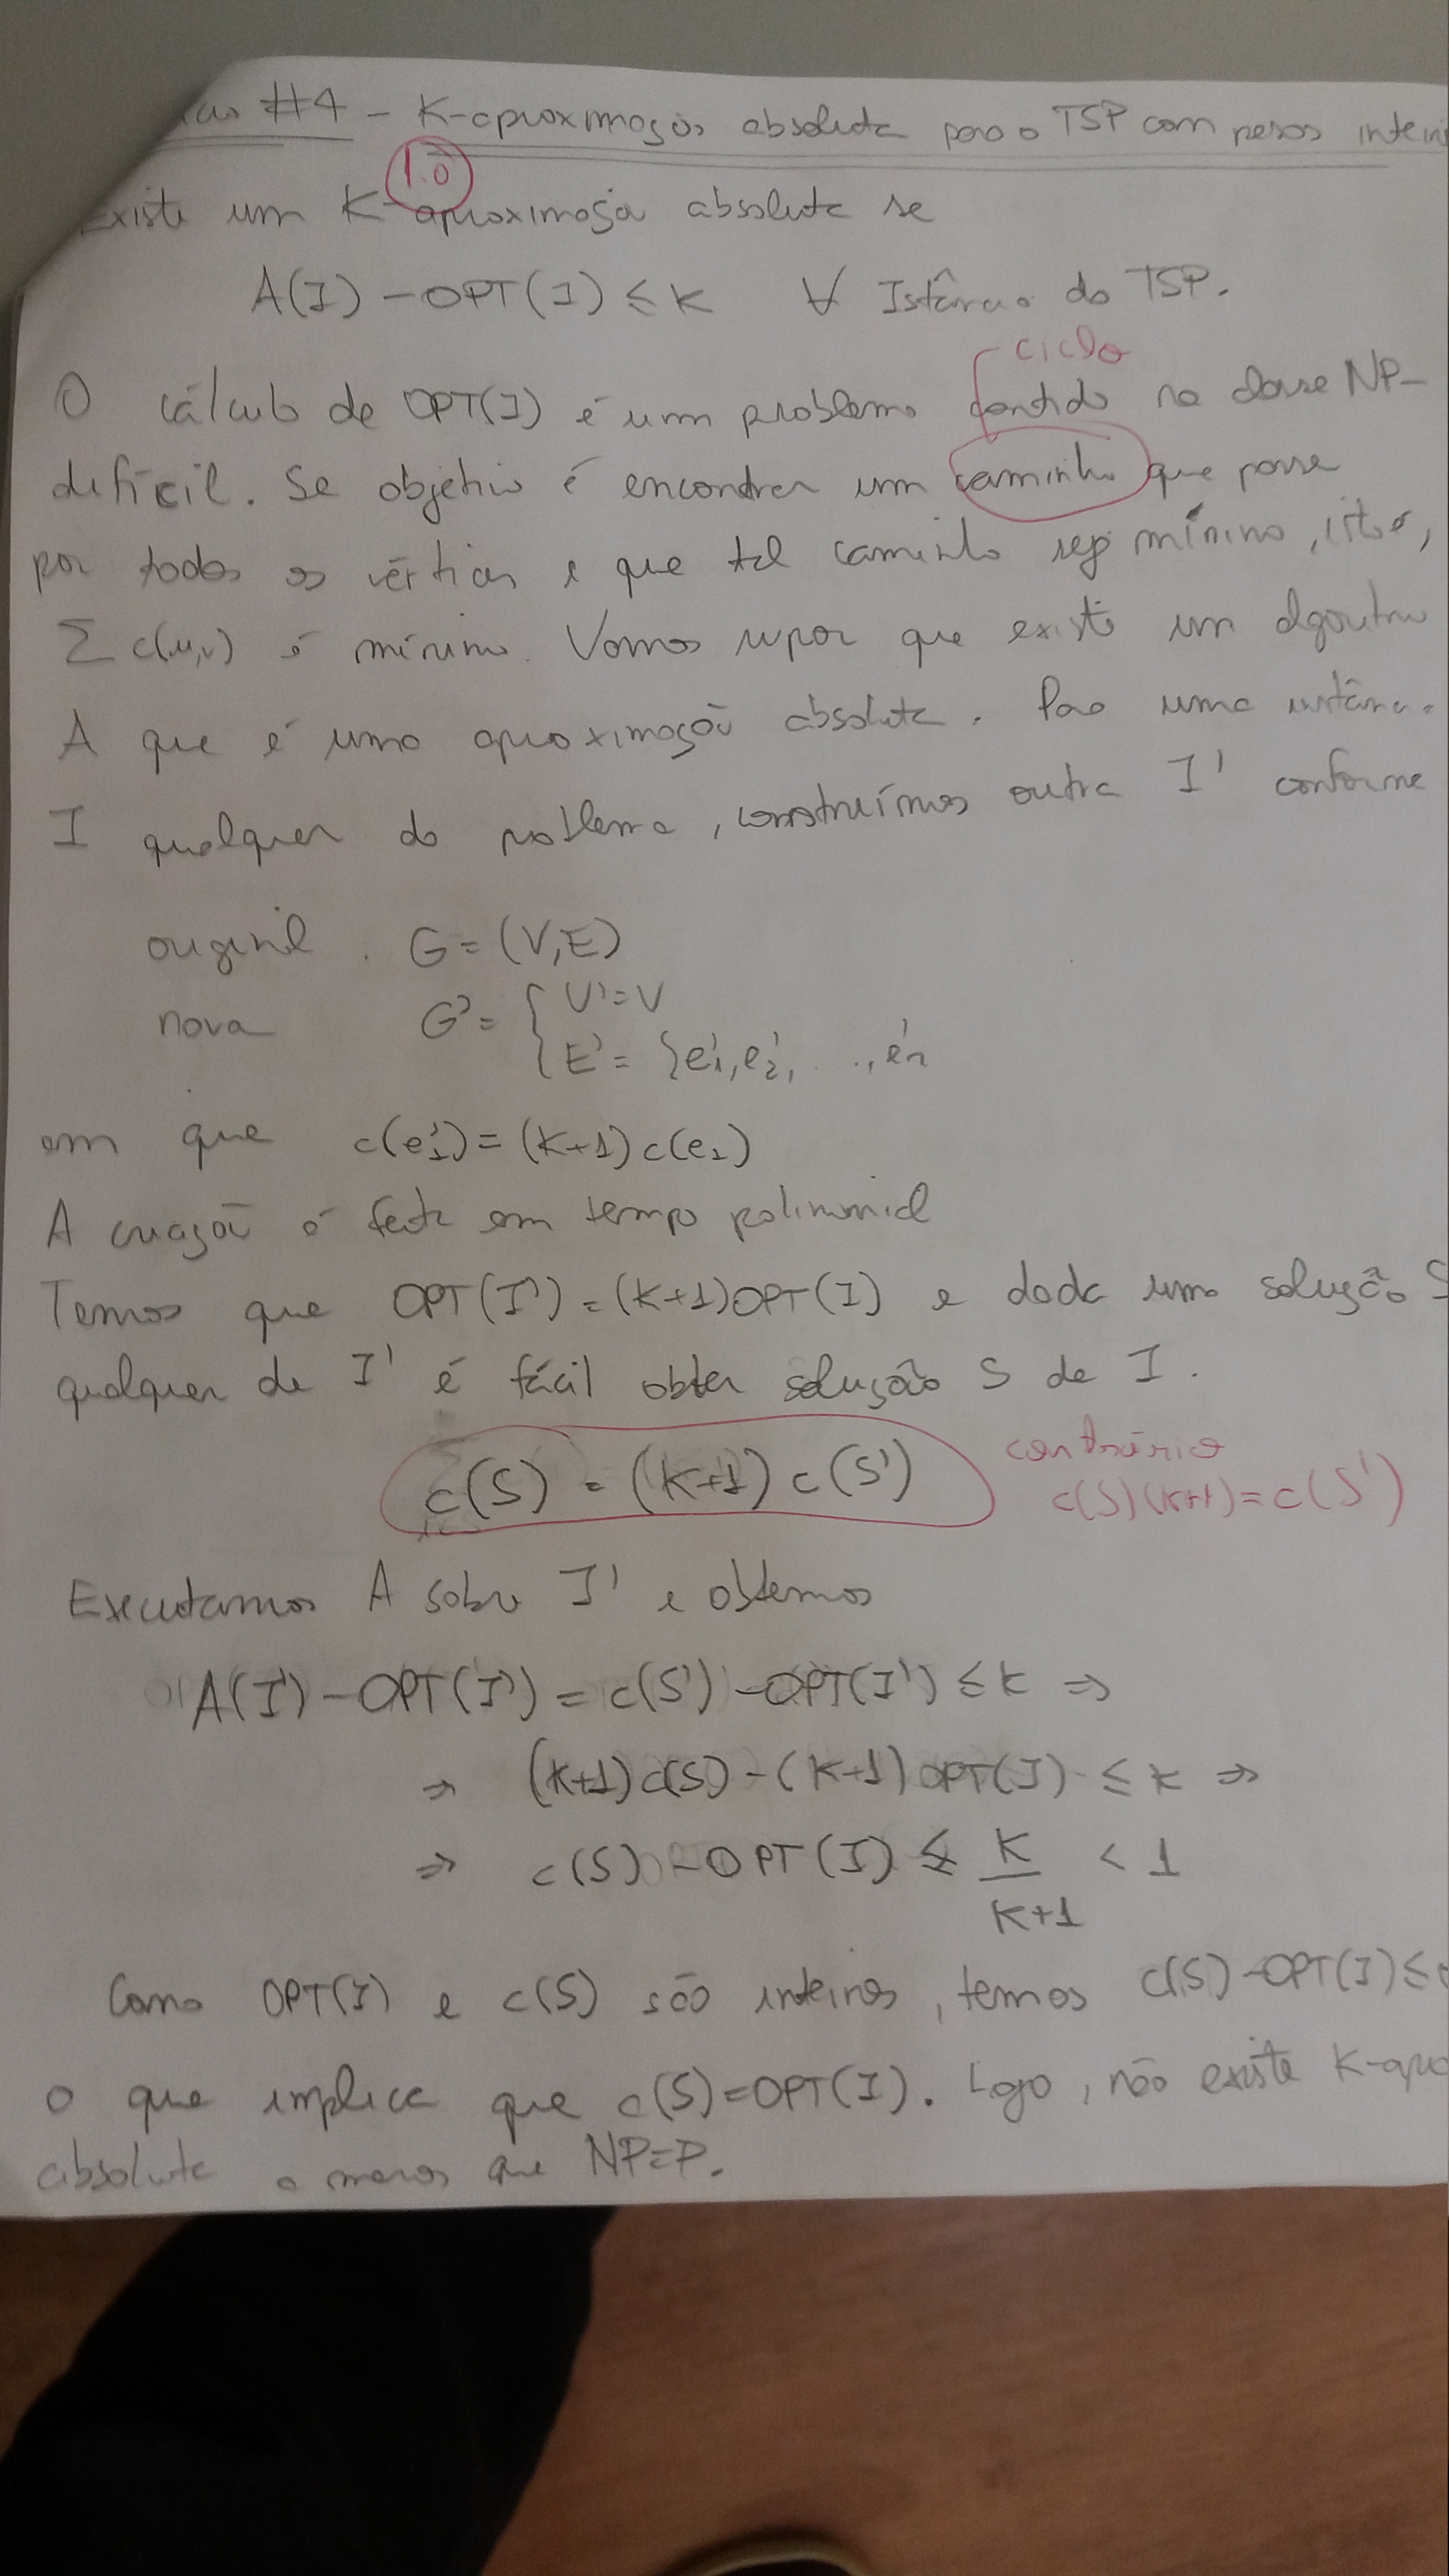 #4 - K-aproximação absoluta para o TSP com pesos intei
1.0
Existe um K-aproximação absoluta se
A(I) - OPT(I) ≤ K ∀ Istância do TSP.
ciclo
O cálculo de OPT(I) é um problema contido na classe NP-
difícil. Se objetivo é encontrar um caminho que passe
por todos os vértices e que tal caminho seja mínimo, isto é,
Σ c(u,v) é mínimo. Vamos supor que existe um algoritmo
A que é uma aproximação absoluta. Para uma instância
I qualquer do problema, construímos outra I' conforme
original . G = (V,E)
nova G' = { V' = V
E' = {e'1, e'2, ..., e'n
em que c(e'1) = (K+1) c(e1)
A criação é feita em tempo polinomial
Temos que OPT(I') = (K+1)OPT(I) e dada uma solução S
qualquer de I' é fácil obter solução S de I.
c(S) = (K+1) c(S')
contrário
c(S)(K+1) = c(S')
Executamos A sobre I' e obtemos
A(I') - OPT(I') = c(S') - OPT(I') ≤ K ⇒
⇒ (K+1) c(S) - (K+1) OPT(I) ≤ K ⇒
⇒ c(S) - OPT(I) ≤ K/K+1 < 1
Como OPT(I) e c(S) são inteiros, temos c(S) - OPT(I) ≤
o que implica que c(S) = OPT(I). Logo, não existe K-apro
absoluta a menos que NP=P.